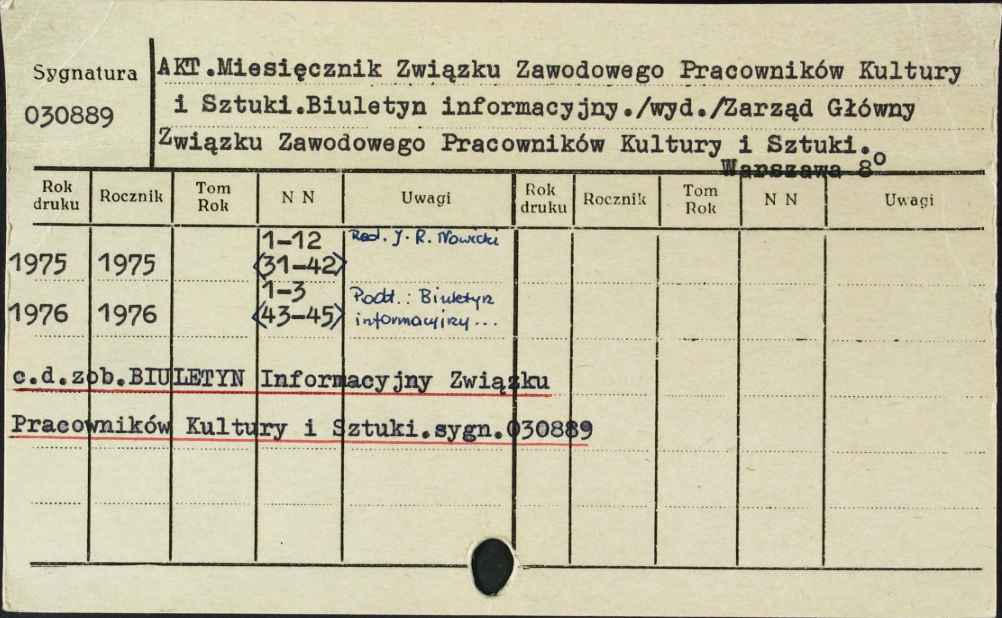 Sygnatura
030889
AKT.Miesięcznik Związku Zawodowego Pracowników Kultury
i Sztuki.Biuletyn informacyjny./wyd./Zarząd Główny
Związku Zawodowego Pracowników Kultury i Sztuki.
Warszawa 8°
Rok druku Rocznik Tom Rok N N Uwagi Rok druku Rocznik Tom Rok N N Uwagi
1-12 Red. J. R. Nowicki
1975 1975 <31-42>
1-3 Podt.: Biuletyn
1976 1976 <43-45> informacyjny...
c.d.zob.BIULETYN Informacyjny Związku
Pracowników Kultury i Sztuki.sygn.030889